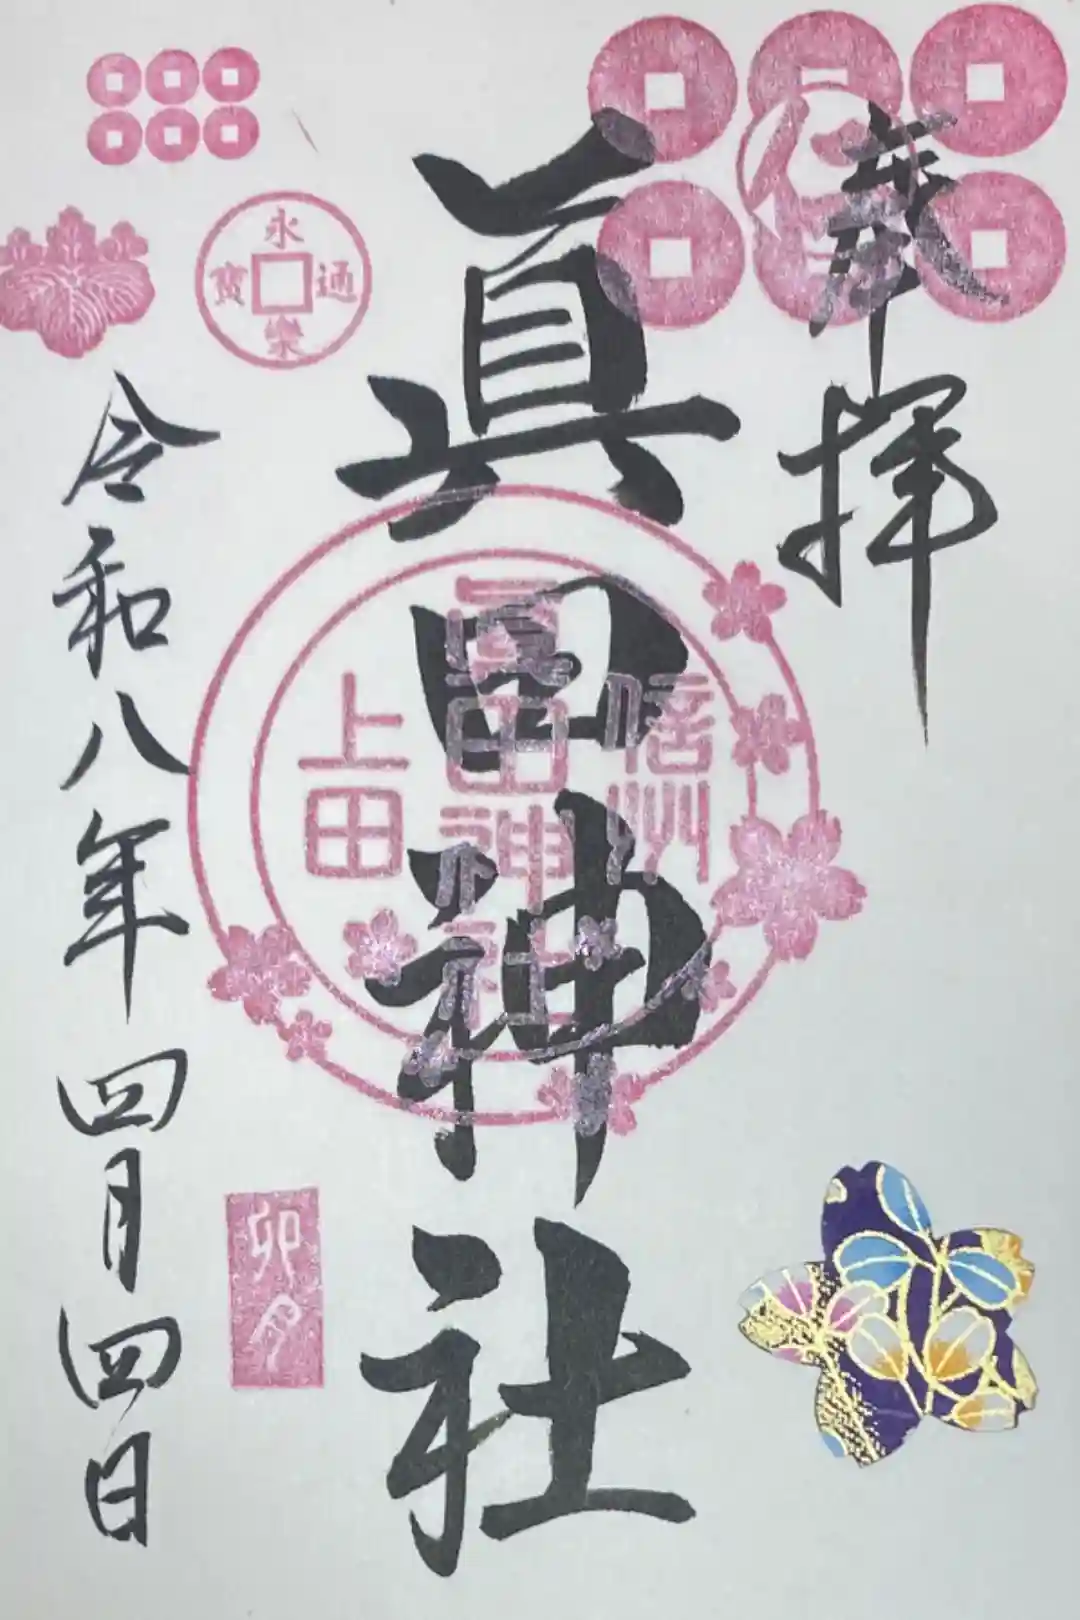 奉拝
眞田神社
信州
眞田神社
上田
永樂通寶
卯月
令和八年四月四日